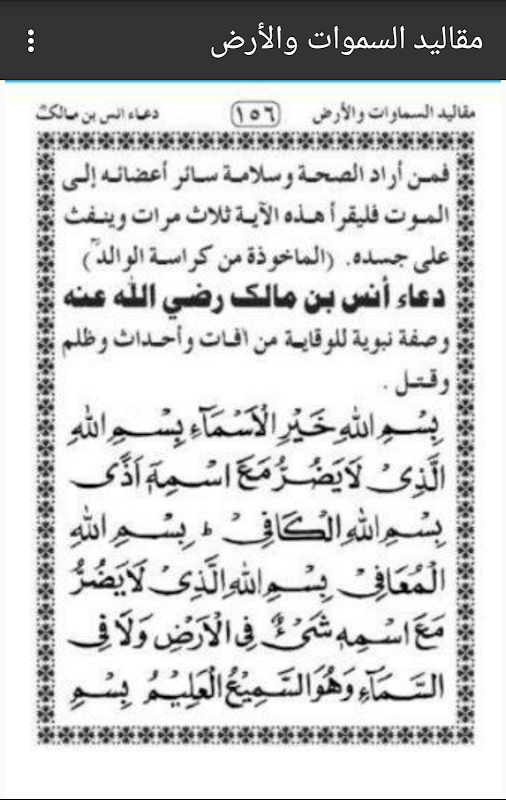 مقاليد السموات والأرض
مقاليد السماوات والأرض ١٥٦ دعاء انس بن مالك
فمن أراد الصحة وسلامة سائر أعضائه إلى
الموت فليقرأ هذه الآية ثلاث مرات وينفث
على جسده. (الماخوذة من كراسة الوالد)
دعاء أنس بن مالك رضي الله عنه
وصفة نبوية للوقاية من آفات وأحداث وظلم
وقتل .
بِسْمِ اللهِ خَيْرِ الْاَسْمَآءِ بِسْمِ اللهِ
الَّذِىْ لَايَضُرُّ مَعَ اسْمِهٖٓ اَذًى
بِسْمِ اللهِ الْكَافِىْ ط بِسْمِ اللهِ
الْمُعَافِىْ بِسْمِ اللهِ الَّذِىْ لَايَضُرُّ
مَعَ اسْمِهٖ شَىْءٌ فِى الْاَرْضِ وَلَا فِى
السَّمَآءِ وَهُوَالسَّمِيْعُ الْعَلِيْمُ بِسْمِ